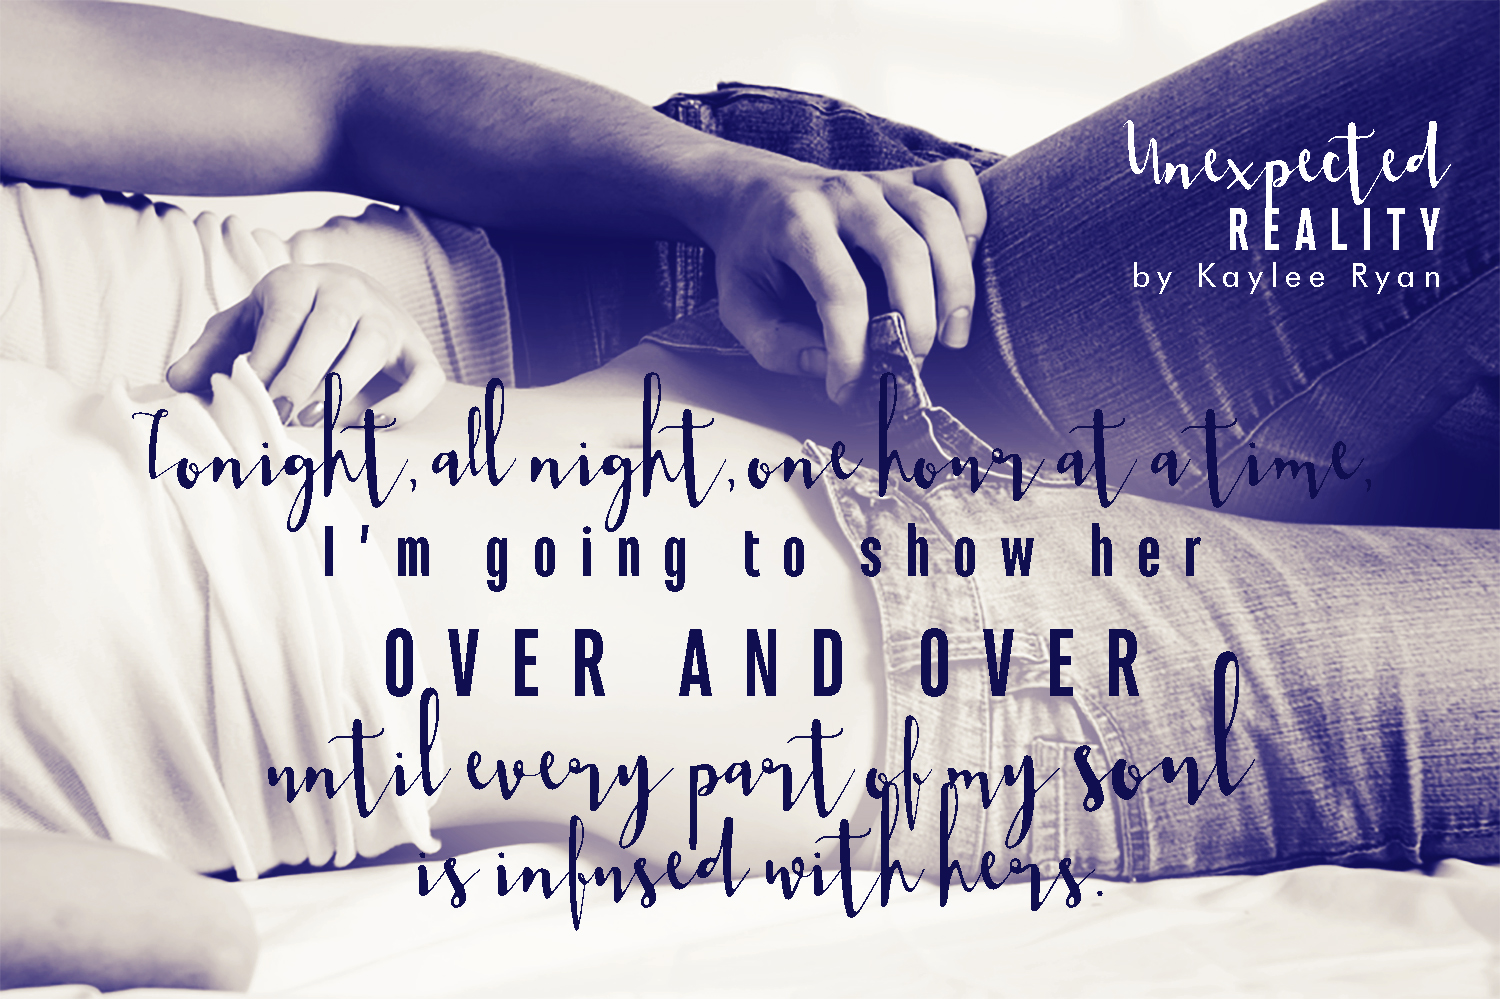 Unexpected
REALITY
by Kaylee Ryan
Tonight, all night, one hour at a time,
I'm going to show her
OVER AND OVER
until every part of my soul
is infused with hers.